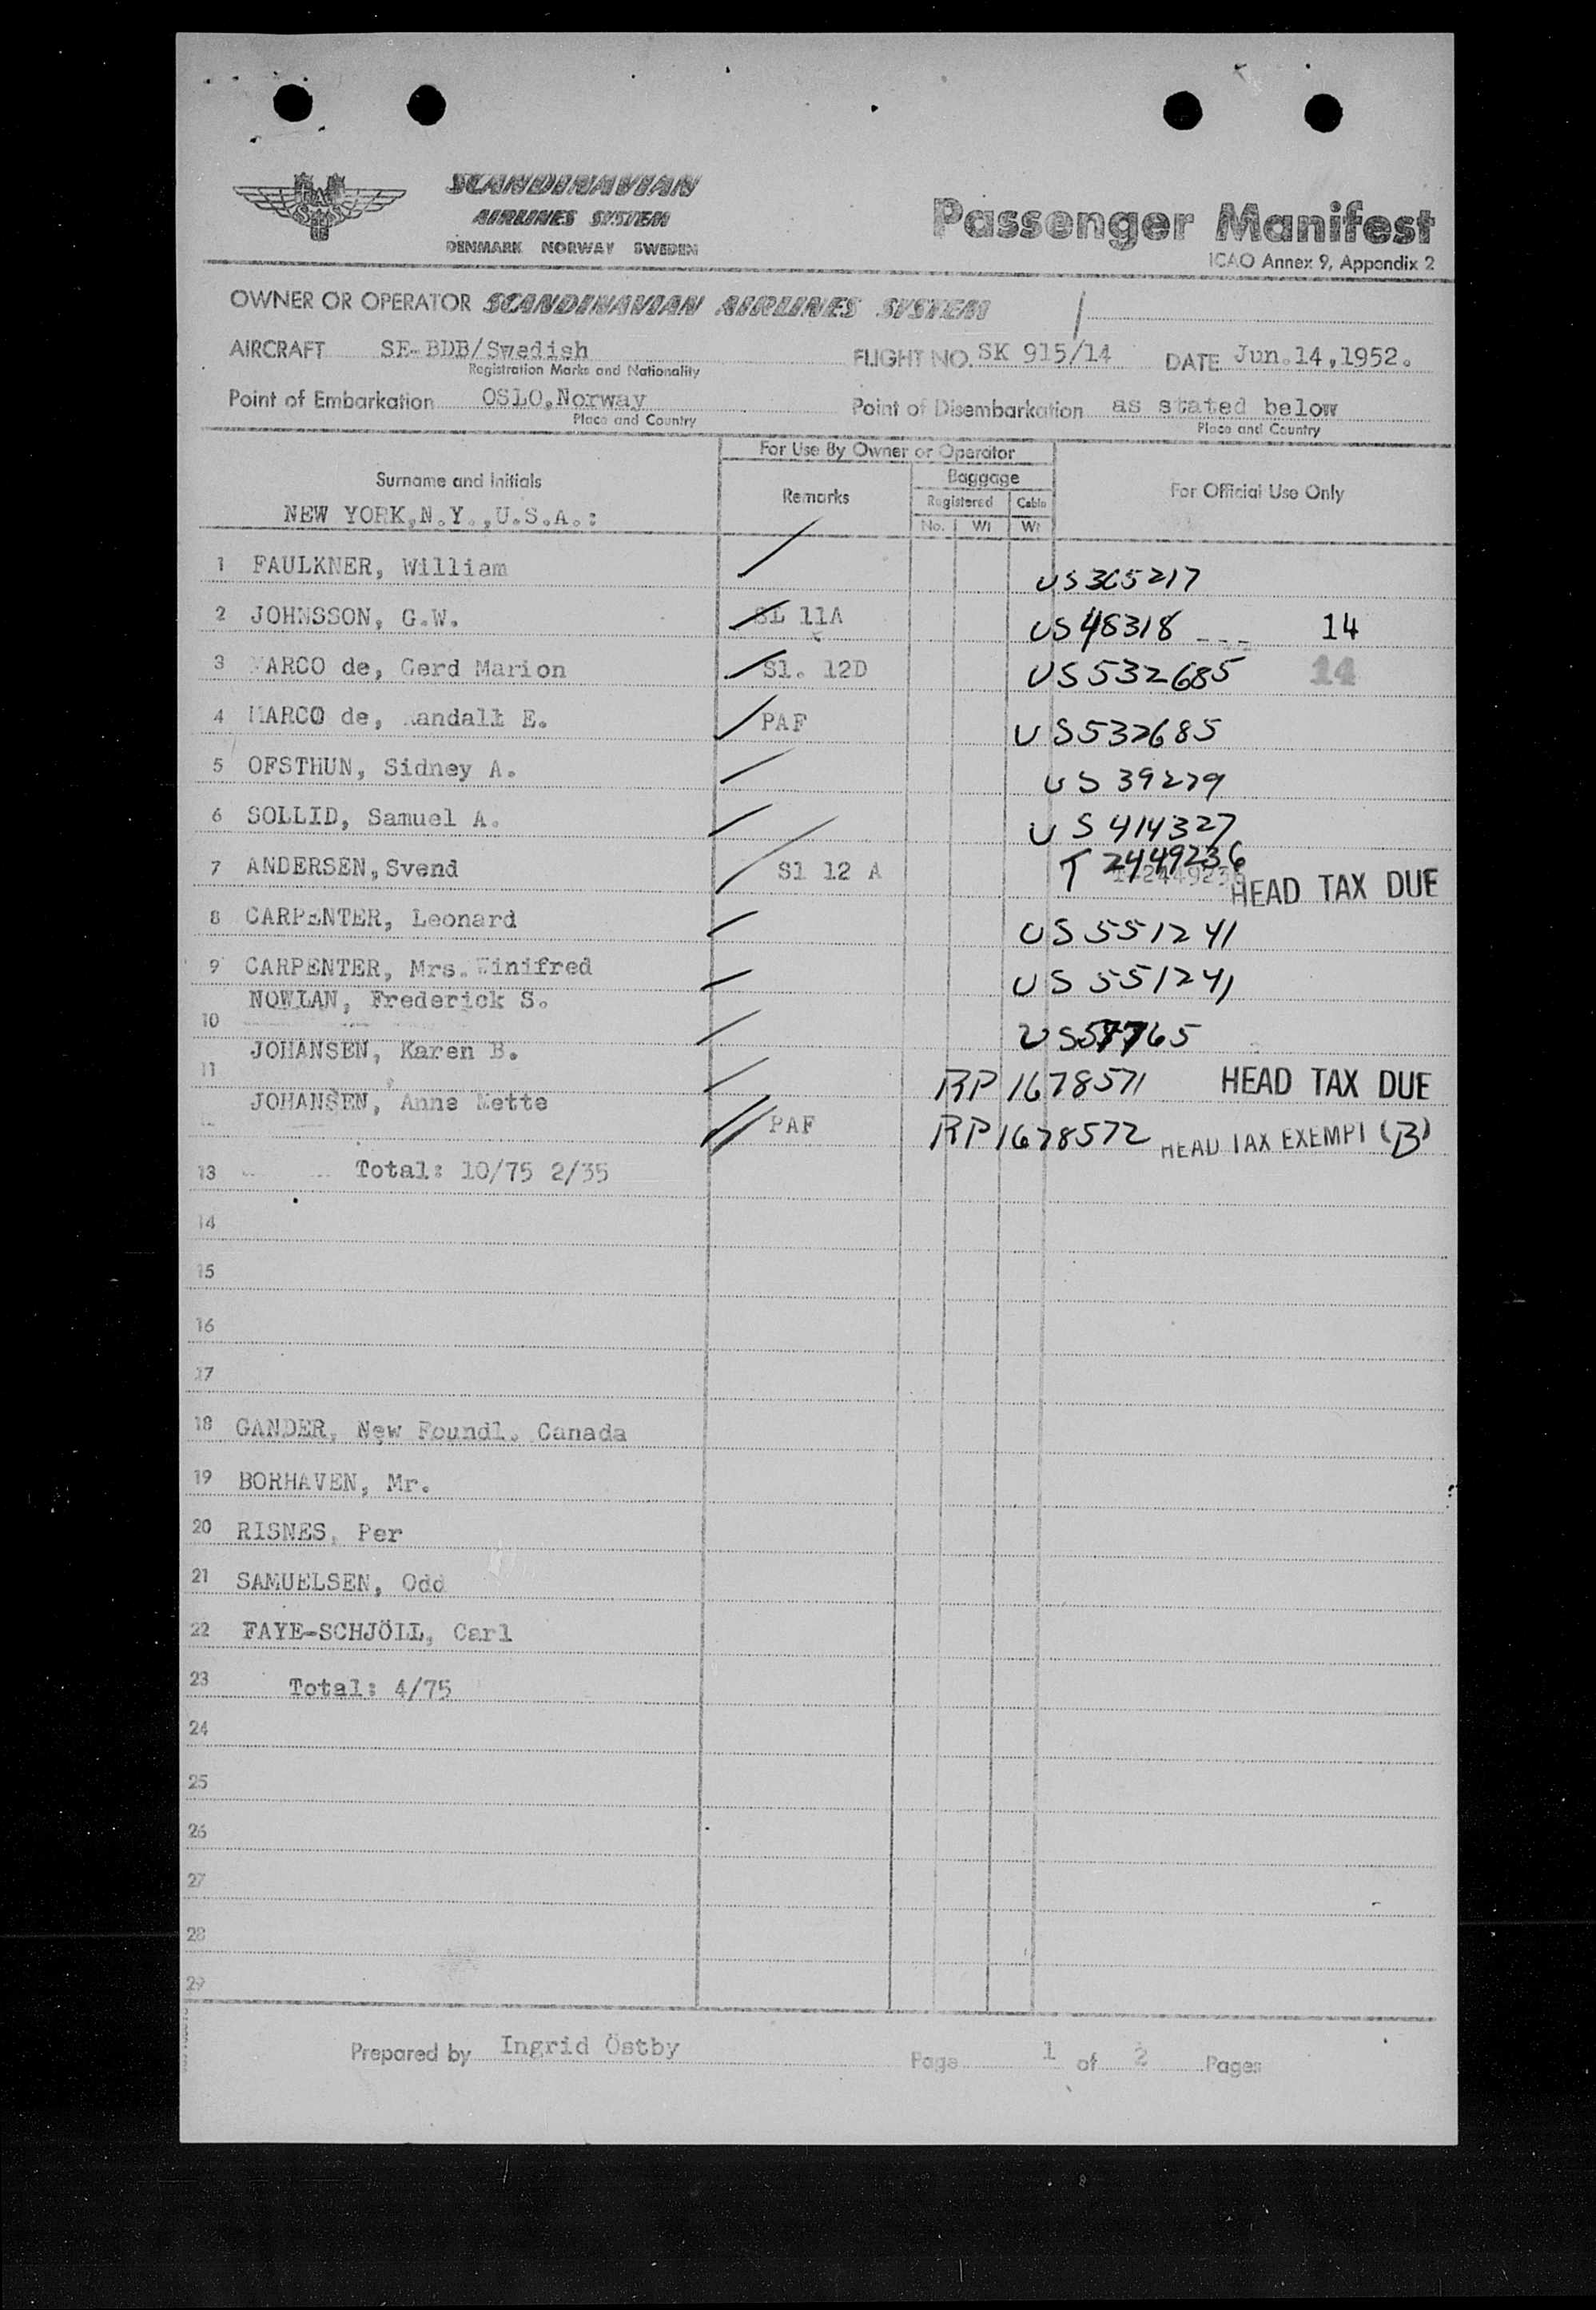 SCANDINAVIAN
AIRLINES SYSTEM
DENMARK NORWAY SWEDEN
Passenger Manifest
ICAO Annex 9, Appendix 2
OWNER OR OPERATOR SCANDINAVIAN AIRLINES SYSTEM
AIRCRAFT SE-BDB/Swedish FLIGHT NO. SK 915/14 DATE Jun.14,1952.
Registration Marks and Nationality
Point of Embarkation OSLO,Norway Point of Disembarkation as stated below
Place and Country Place and Country
For Use By Owner or Operator
Surname and Initials Remarks Baggage For Official Use Only
Registered Cabin
NEW YORK,N.Y.,U.S.A.: No. Wt Wt
1 FAULKNER, William US 365217
2 JOHNSSON, G.W. SL 11A US 48318 14
3 MARCO de, Gerd Marion Sl. 12D US 532685 14
4 MARCO de, Randall E. PAF US 532685
5 OFSTHUN, Sidney A. US 39279
6 SOLLID, Samuel A. US 414327
7 ANDERSEN,Svend Sl 12 A T 2449236 HEAD TAX DUE
8 CARPENTER, Leonard US 551241
9 CARPENTER, Mrs. Winifred US 551241
NOWLAN, Frederick S.
10 US 57765
JOHANSEN, Karen B.
11 RP 1678571 HEAD TAX DUE
JOHANSEN, Anne Mette
PAF RP 1678572 HEAD TAX EXEMPT (B)
13 Total: 10/75 2/35
14
15
16
17
18 GANDER, New Foundl. Canada
19 BORHAVEN, Mr.
20 RISNES, Per
21 SAMUELSEN, Odd
22 FAYE-SCHJÖLL, Carl
23 Total: 4/75
24
25
26
27
28
29
Prepared by Ingrid Östby Page 1 of 2 Pages